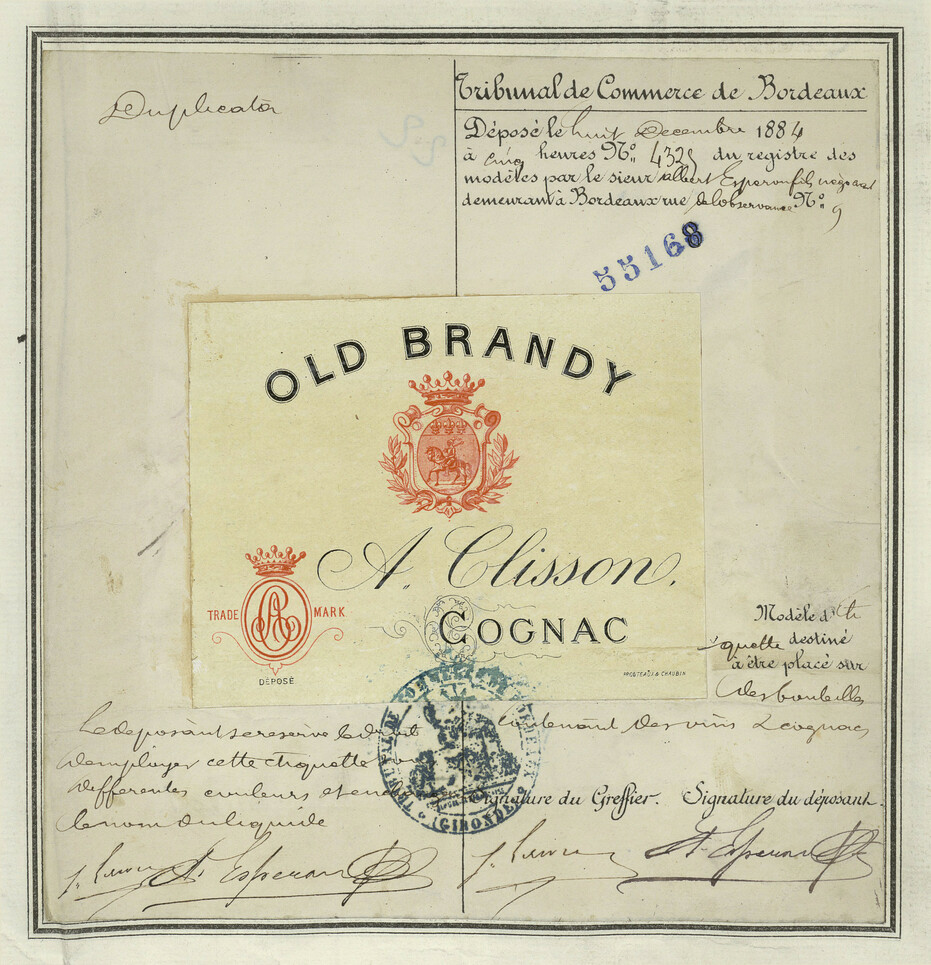 Duplicata
Tribunal de Commerce de Bordeaux
Déposé le huit Decembre 1884
à cinq heures No. 4325 du registre des
modèles par le sieur albert Esperon fils négociant
demeurant à Bordeaux rue de l'observance No. 9
55168
OLD BRANDY
A. Clisson,
COGNAC
TRADE MARK
DÉPOSÉ
PROTEAUX & CHAUBIN
Modèle d'éti
quette destiné
à être placé sur
des bouteilles
contenant des vins & cognacs
Le deposant se reserve le droit
d'employer cette etiquette
differentes couleurs et
le nom du liquide
TRIBUNAL DE COMMERCE DE BORDEAUX
(GIRONDE)
Signature du Greffier. Signature du déposant.
A. Esperon
A. Esperon